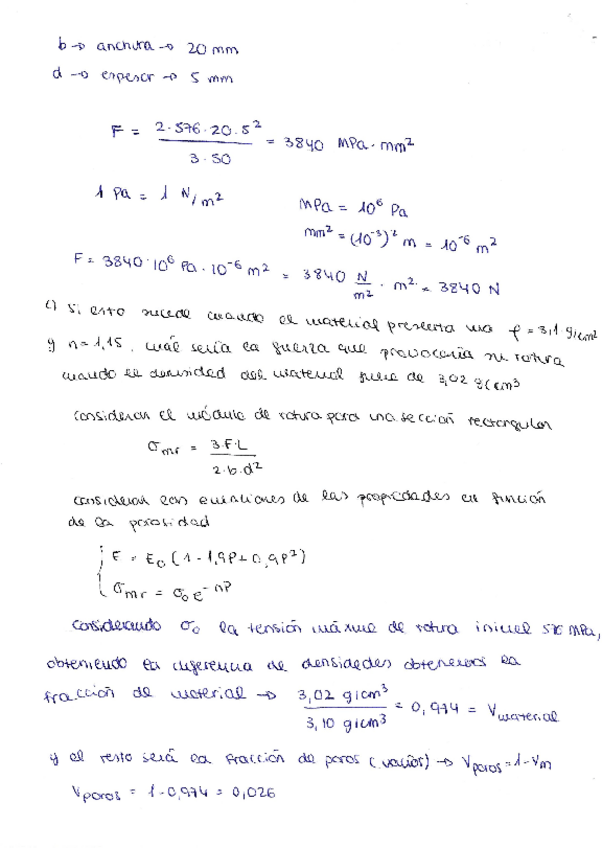 b → anchura → 20 mm
d → espesor → 5 mm
F = 2·576·20·5² / 3·50 = 3840 MPa·mm²
1 Pa = 1 N/m²
MPa = 10⁶ Pa
mm² = (10⁻³)² m = 10⁻⁶ m²
F = 3840·10⁶ Pa·10⁻⁶ m² = 3840 N/m² · m² = 3840 N
c) Si esto sucede cuando el material presenta una ρ = 3,1 g/cm³
y n = 1,15, cuál sería la fuerza que provocaría su rotura
cuando la densidad del material fuese de 3,02 g/cm³
considerar el módulo de rotura para una sección rectangular
σmr = 3·F·L / 2·b·d²
considerar las ecuaciones de las propiedades en función
de la porosidad
E = E₀ (1 - 1,9P + 0,9P²)
σmr = σ₀ e^-nP
considerando σ₀ la tensión máxima de rotura inicial 576 MPa,
obteniendo la diferencia de densidades obtenemos la
fracción de material → 3,02 g/cm³ / 3,10 g/cm³ = 0,974 = Vmaterial
y el resto será la fracción de poros (vacíos) → Vporos = 1 - Vm
Vporos = 1 - 0,974 = 0,026